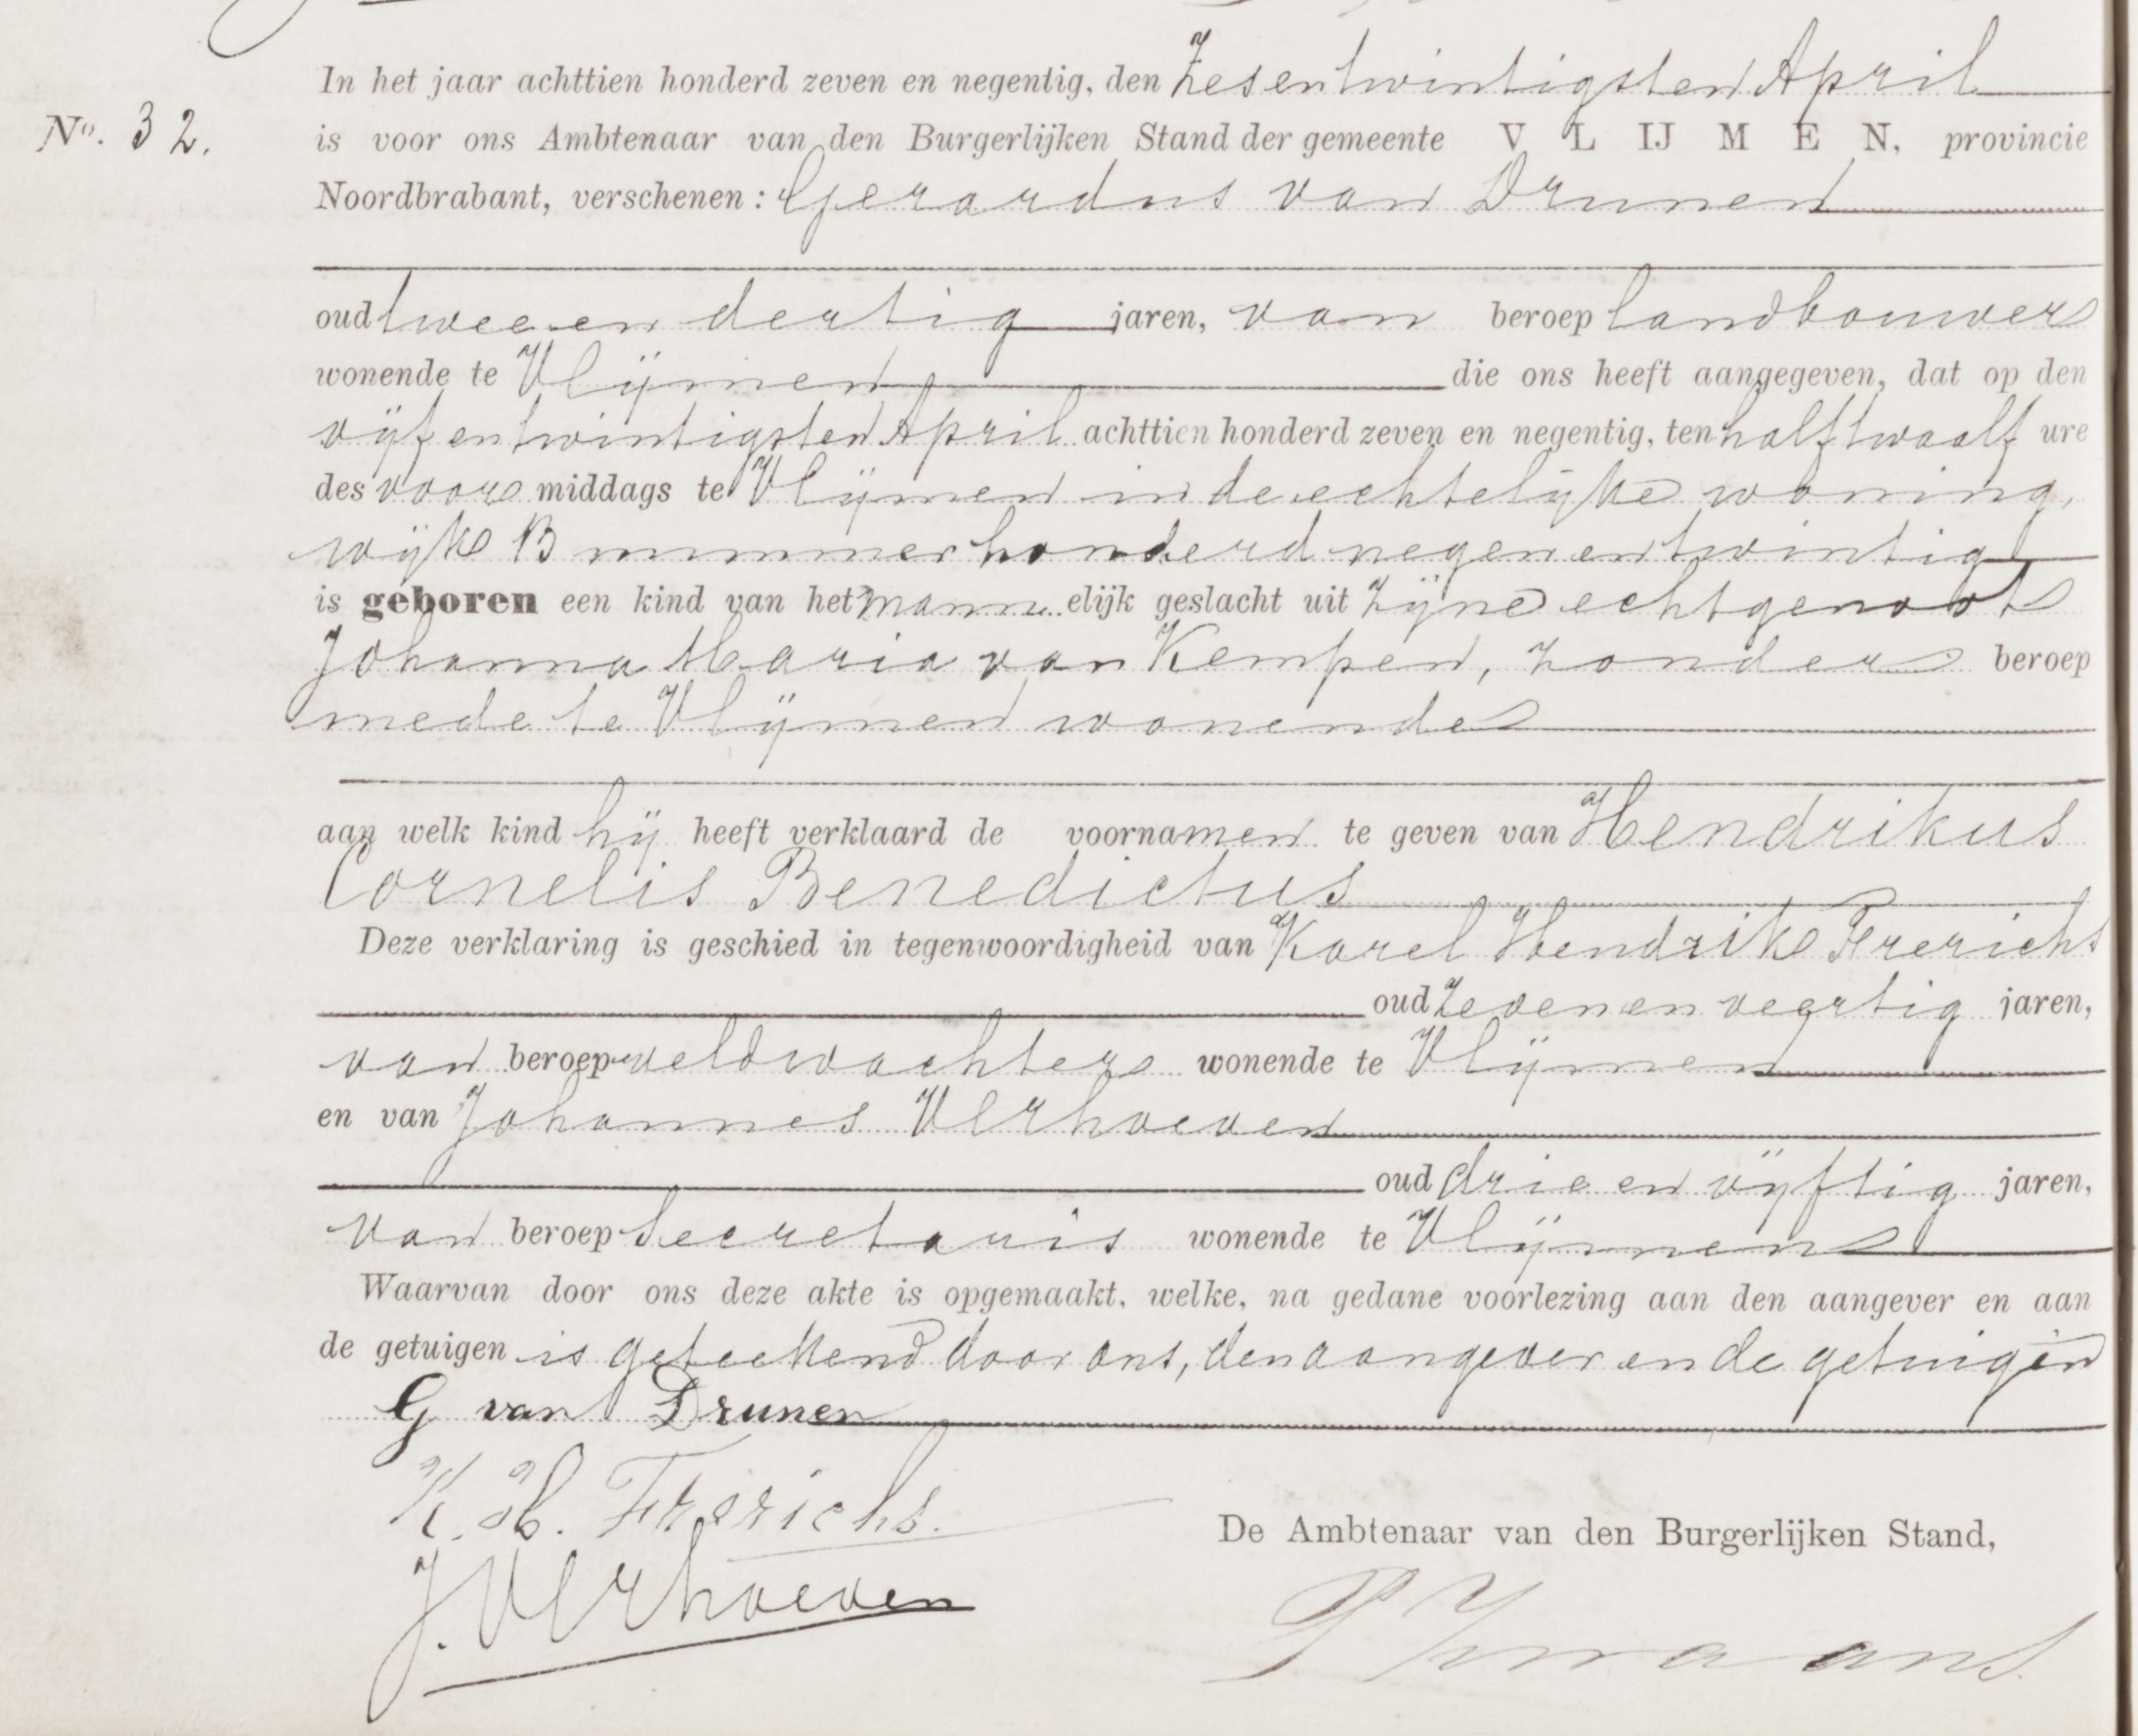 In het jaar achttien honderd zeven en negentig, den Zesentwintigsten April
No. 32. is voor ons Ambtenaar van den Burgerlijken Stand der gemeente VLIJMEN, provincie
Noordbrabant, verschenen: Gerardus van Drunen
oud twee en dertig jaren, van beroep landbouwer
wonende te Vlijmen die ons heeft aangegeven, dat op den
vijfentwintigsten April achttien honderd zeven en negentig, ten half twaalf ure
des voor middags te Vlijmen in de echtelijke woning,
wijk B nummer honderd negenentwintig
is geboren een kind van het mannelijk geslacht uit zijne echtgenoot
Johanna Maria van Kempen, zonder beroep
mede te Vlijmen wonende
aan welk kind hij heeft verklaard de voornamen te geven van Hendrikus
Cornelis Benedictus
Deze verklaring is geschied in tegenwoordigheid van Karel Hendrik Frerichs
oud zevenenveertig jaren,
van beroep veldwachter wonende te Vlijmen
en van Johannes Verhoeven
oud drie en vijftig jaren,
van beroep Secretaris wonende te Vlijmen
Waarvan door ons deze akte is opgemaakt, welke, na gedane voorlezing aan den aangever en aan
de getuigen is geteekend door ons, den aangever en de getuigen
G van Drunen
K. H. Frerichs.
De Ambtenaar van den Burgerlijken Stand,
J. Verhoeven